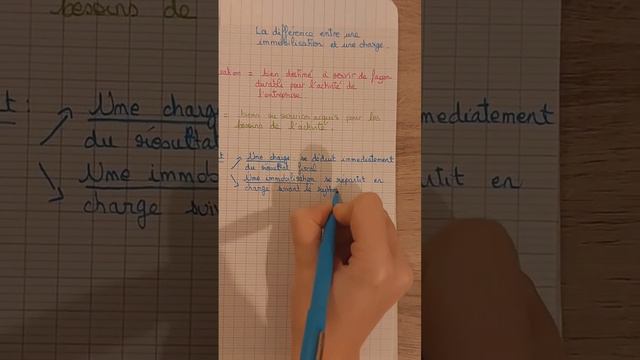 La différence entre une
immobilisation et une charge.
= bien destiné à servir de façon
durable pour l'activité de
l'entreprise
= biens ou services acquis pour les
besoins de l'activité
Une charge se déduit immédiatement
du résultat fiscal
Une immobilisation se répartit en
charge suivant le
besoins de
Une charge
du résultat
Une immob
charge suiv
tit en